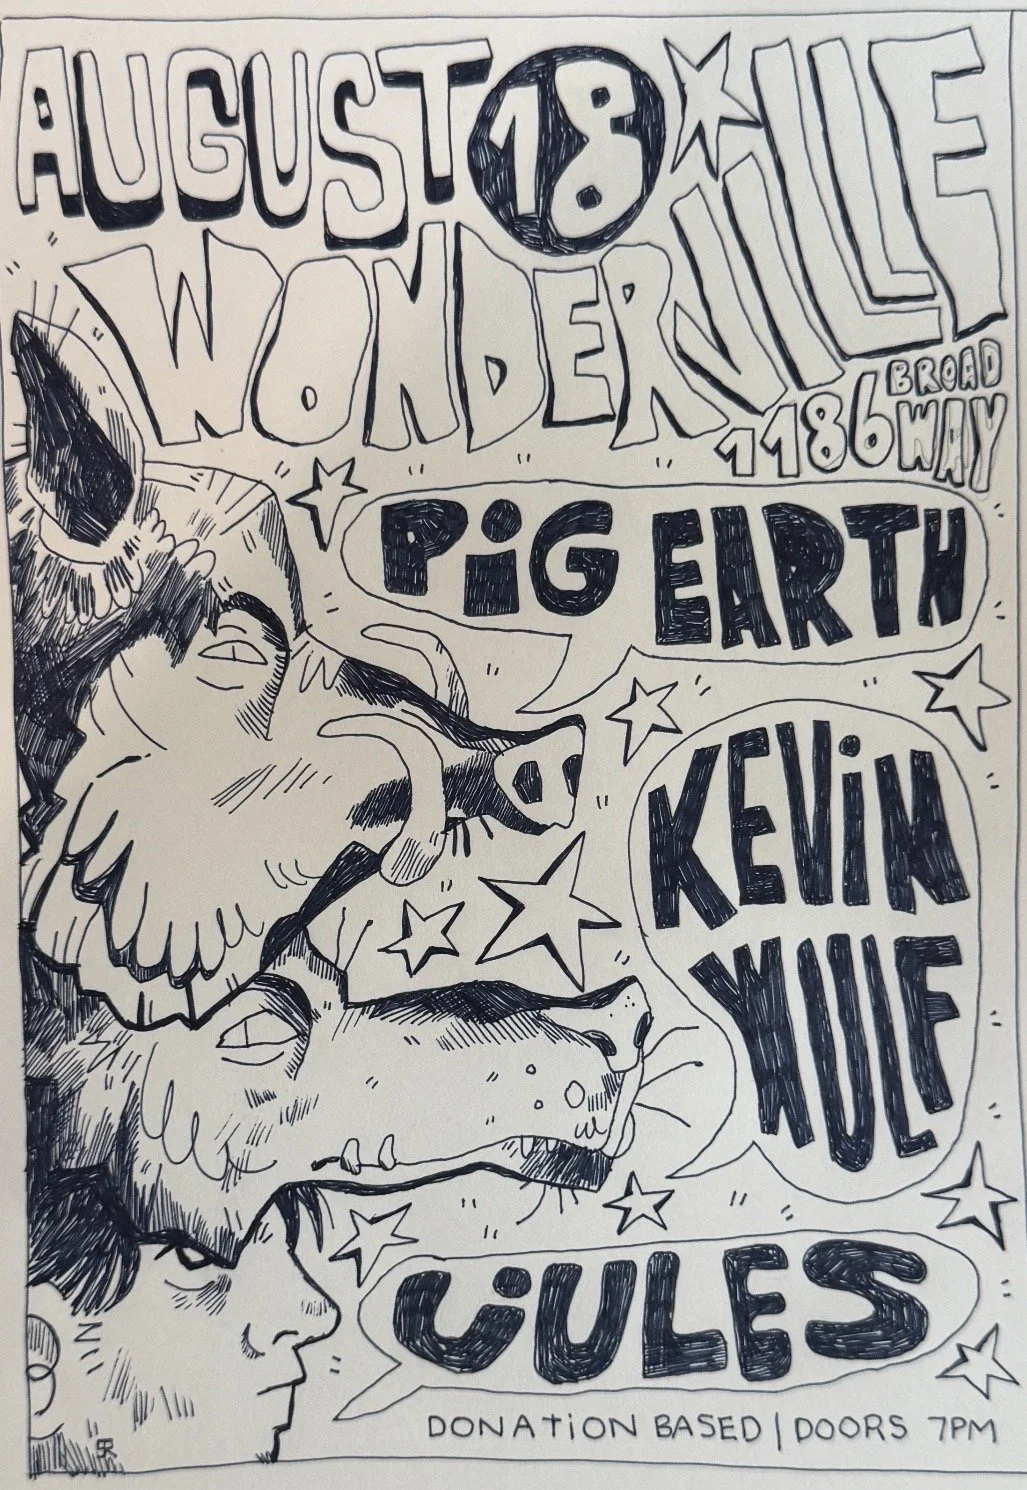 AUGUST 18
WONDERVILLE
1186 BROAD
WAY
PiG EARTH
KEViN
WULF
jULES
DONATiON BASED | DOORS 7PM